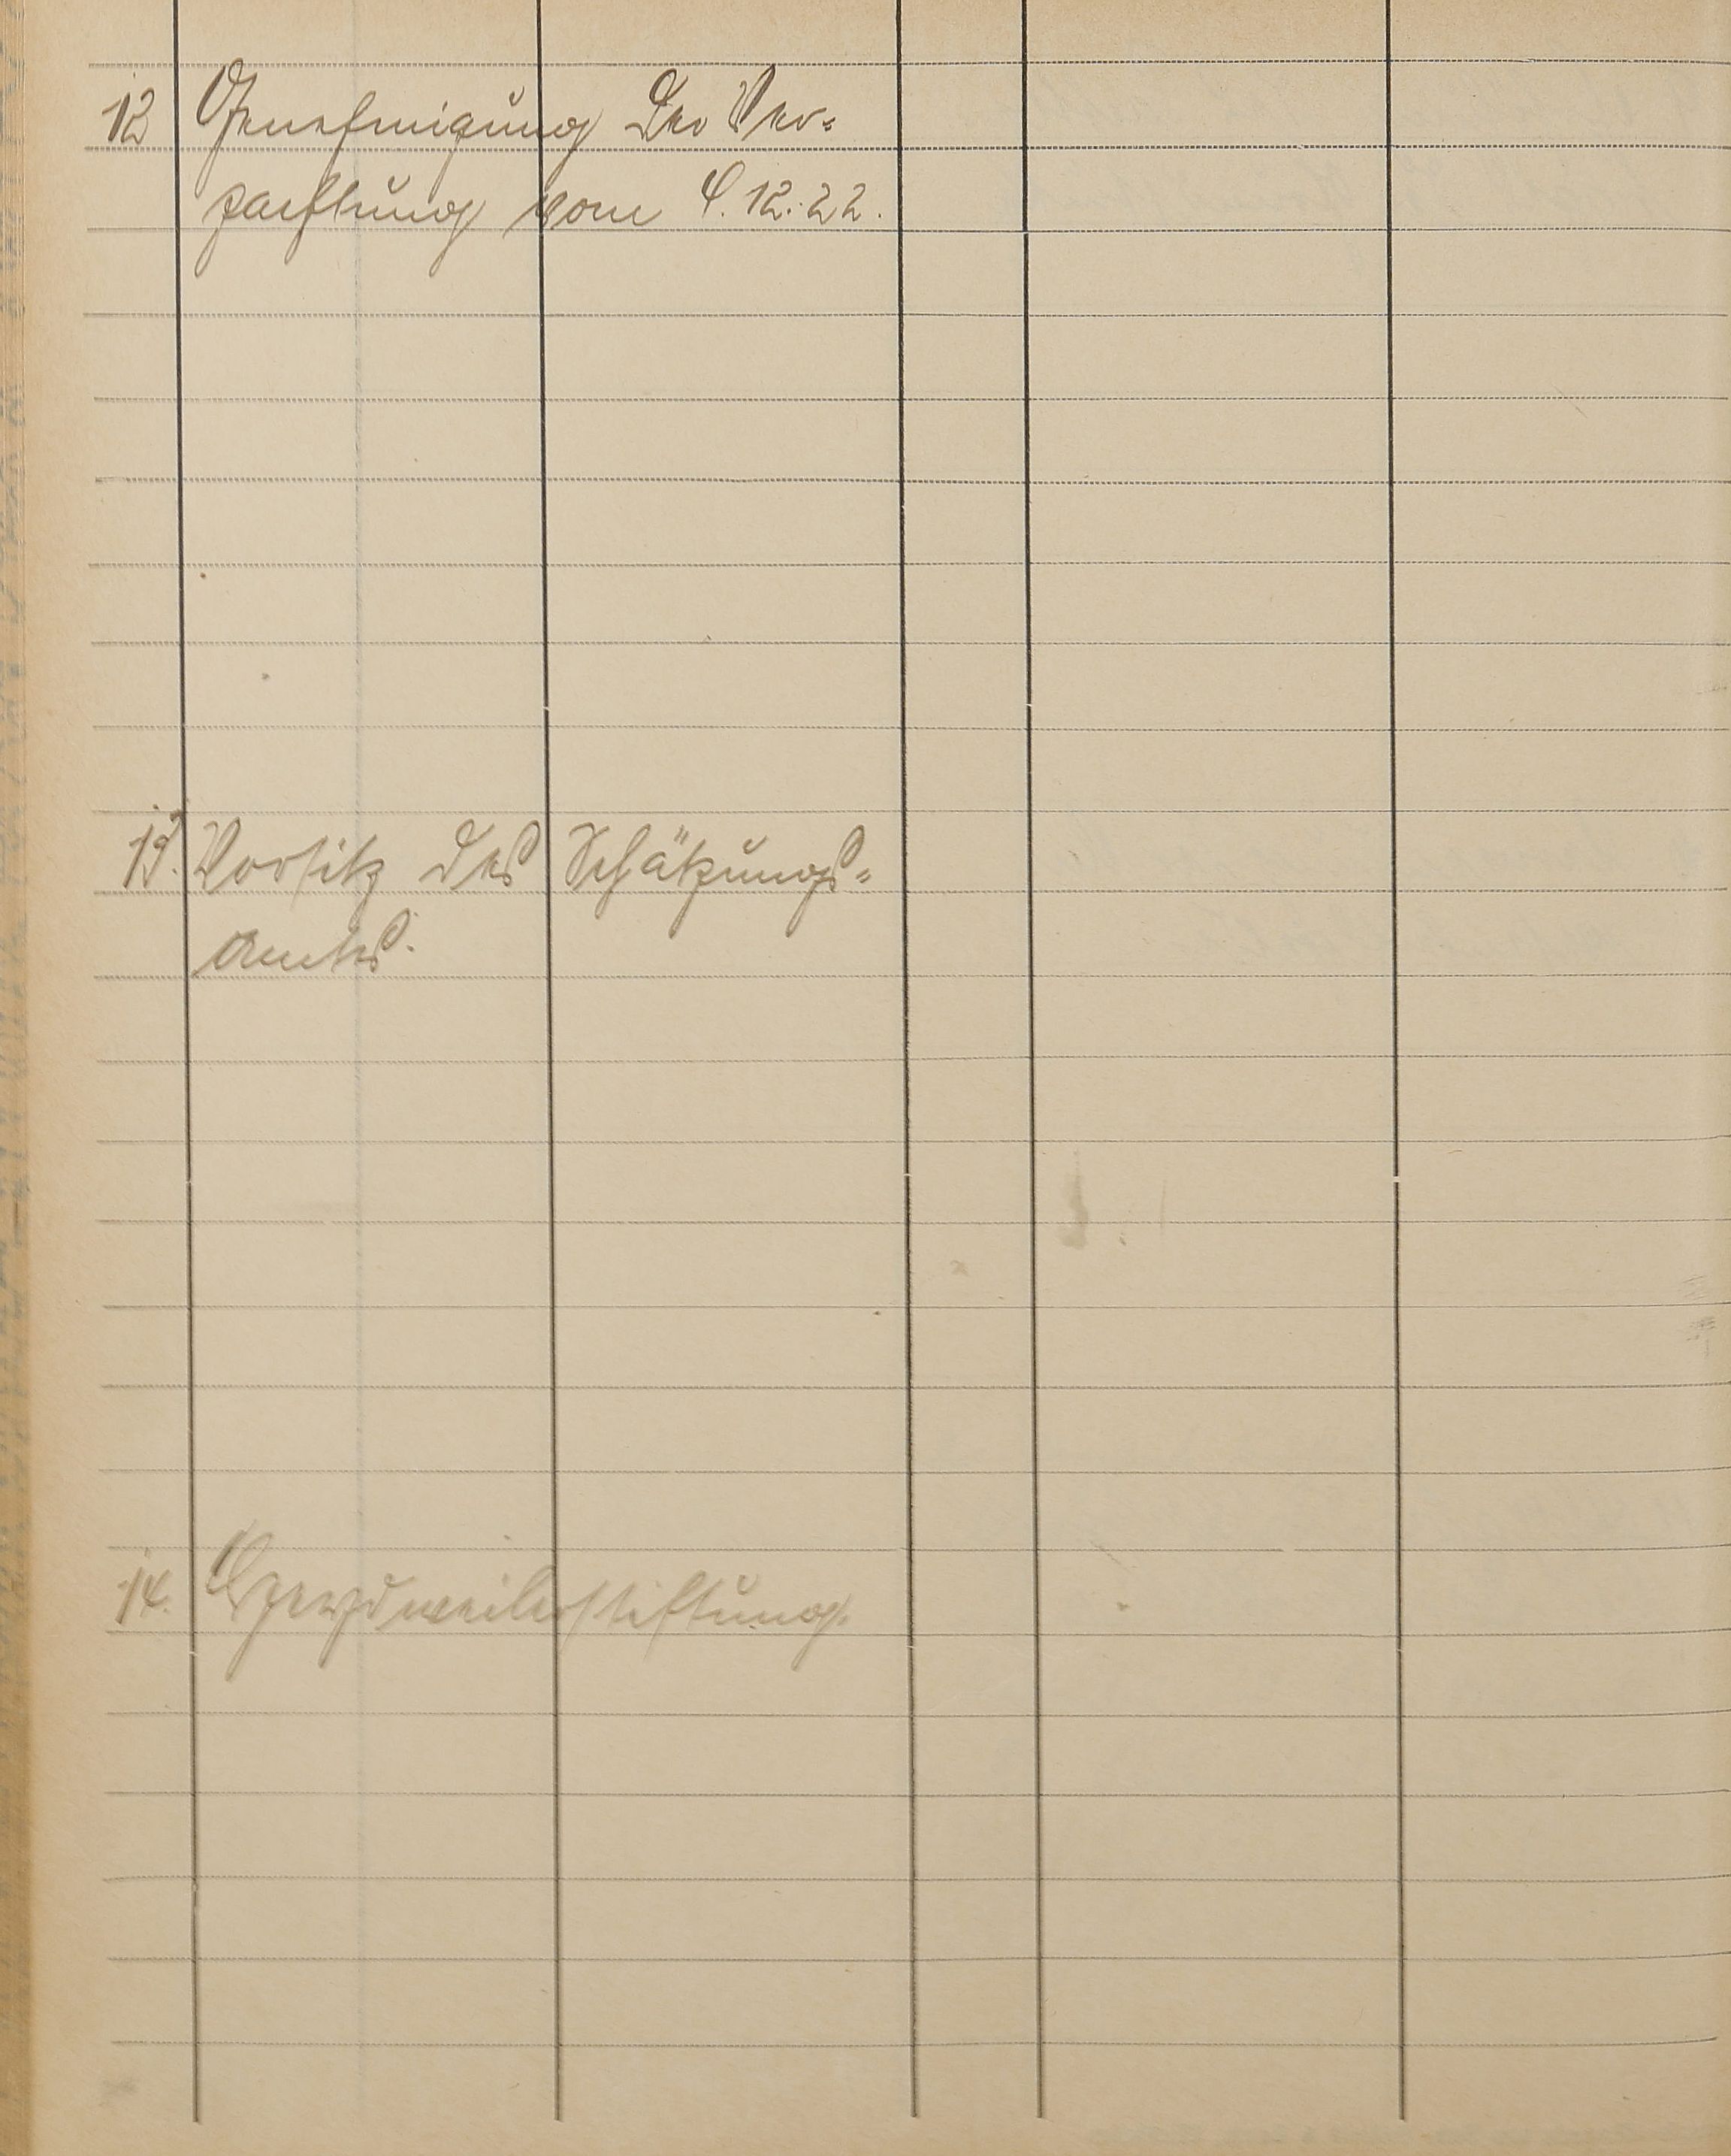 12 Genehmigung der Ver-
pachtung vom 9.12.22.
13. Vorsitz des Schätzungs-
amts.
14.